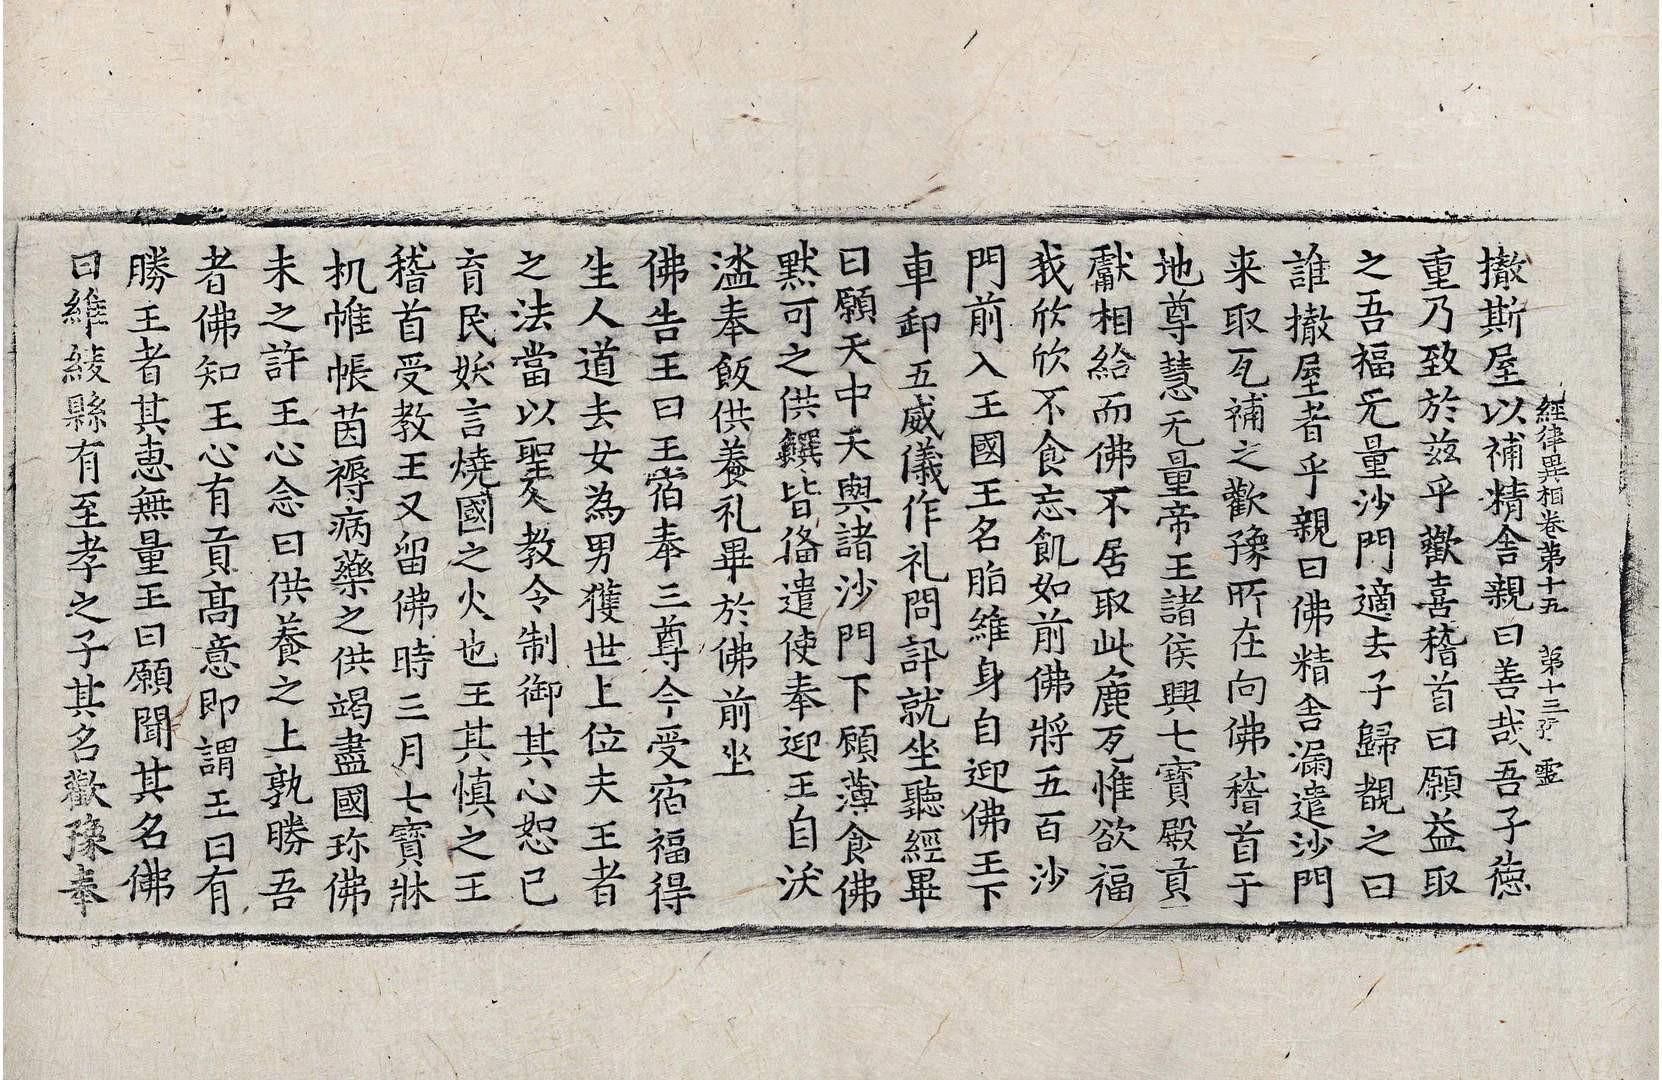 撤斯屋以補精舍親曰善哉吾子德
經律異相卷第十五　第十三張　靈
重乃致於兹乎歡喜稽首曰願益取
之吾福无量沙門適去子歸覩之曰
誰撤屋者乎親曰佛精舍漏遣沙門
来取瓦補之歡豫所在向佛稽首于
地尊慧无量帝王諸侯興七寶殿貢
獻相給而佛不居取此麁瓦惟欲福
我欣欣不食忘飢如前佛將五百沙
門前入王國王名脂維身自迎佛王下
車卸五威儀作礼問訊就坐聽經畢
曰願天中天與諸沙門下顧薄食佛
默可之供饌皆俻遣使奉迎王自沃
盥奉飯供養礼畢於佛前坐
佛告王曰王甞奉三尊今受宿福得
生人道去女為男獲世上位夫王者
之法當以聖人教令制御其心恕己
育民妖言燒國之火也王其慎之王
稽首受教王又留佛時三月七寶牀
机帷帳茵褥病藥之供竭盡國珎佛
未之許王心念曰供養之上孰勝吾
者佛知王心有貢高意即謂王曰有
勝王者其惠無量王曰願聞其名佛
曰維綾縣有至孝之子其名歡豫奉